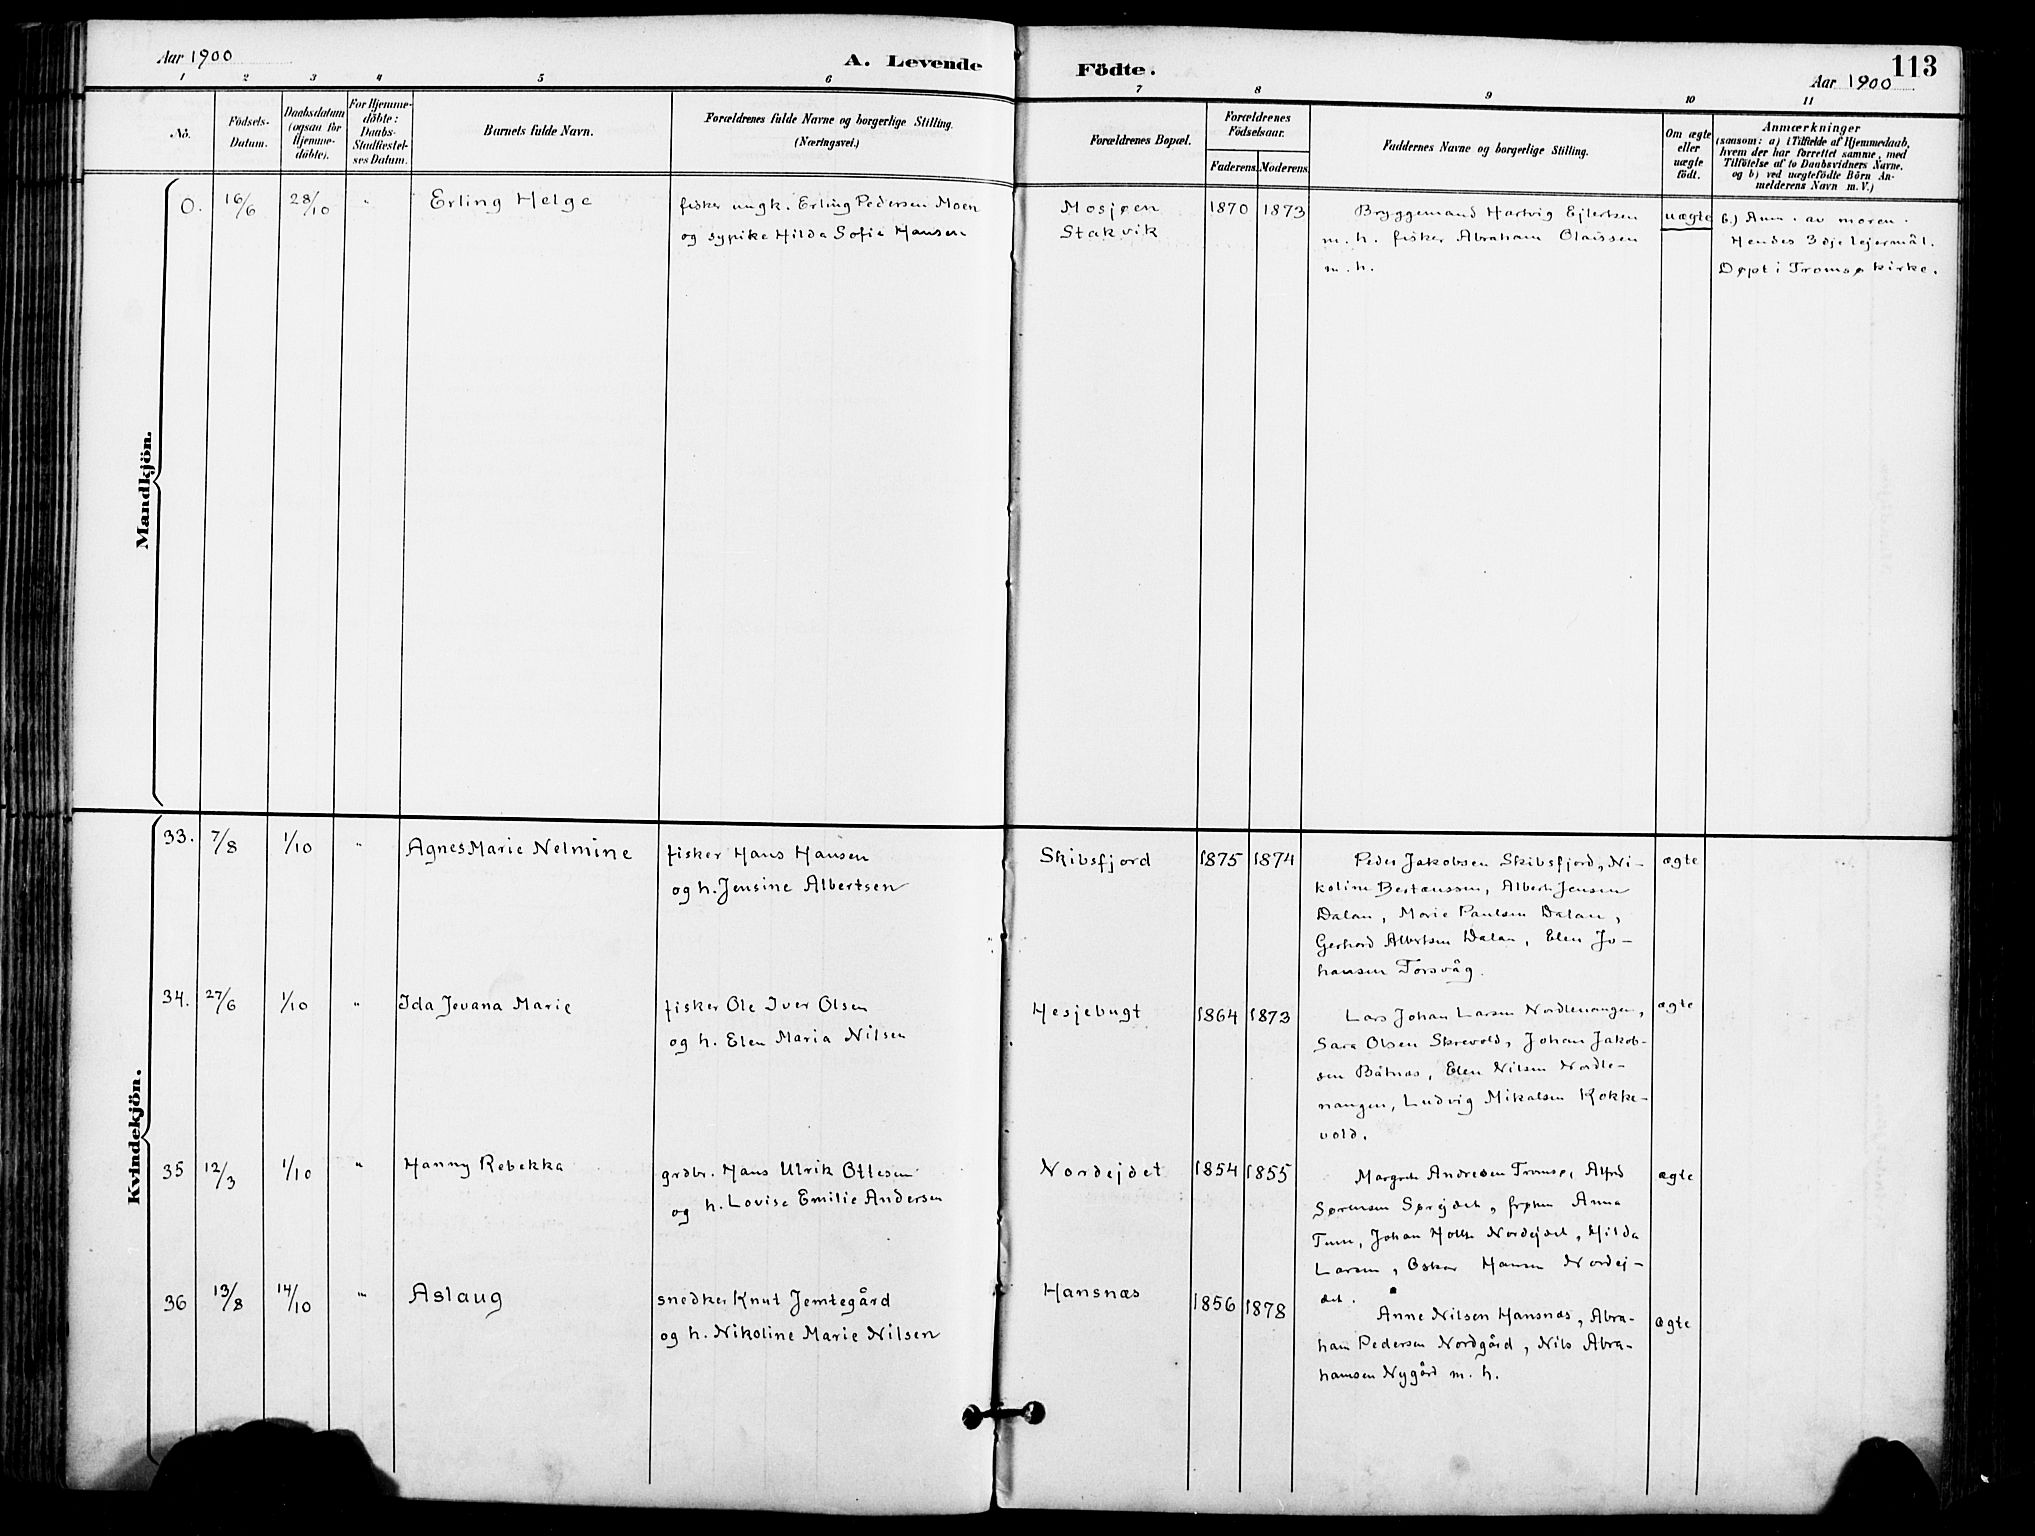 Aar 1900
A. Levende
Födte.
113
Aar 1900
1 2 3 4 5 6 7 8 9 10 11
No.
Födsels-
Datum.
Daabsdatum
(ogsaa for
Hjemme-
döbte).
For Hjemme-
döbte:
Daabs-
Stadfæstel-
ses Datum.
Barnets fulde Navn.
Forældrenes fulde Navne og borgerlige Stilling.
(Næringsvei.)
Forældrenes Bopæl.
Forældrenes
Födselsaar.
Faderens. Moderens.
Faddernes Navne og borgerlige Stilling.
Om ægte
eller
uægte
födt.
Anmærkninger
(saasom: a) i Tilfælde af Hjemmedaab,
hvem der har forrettet samme, med
Tilföielse af to Daabsvidners Navne.
og b) ved uægtefödte Börn An-
melderens Navn m. V.)
Mandkjön.
0. 16/6 28/10 " Erling Helge
fisker ungk. Erling Pedersen Moen
og sypike Hilda Sofie Hansen
Mosjøen
Stakvik
1870 1873
Bryggemand Hartvig Ejlertsen
m. h. fisker Abraham Olaissen
m. h.
uægte
b.) Anm. av moren.
Hendes 3dje lejermål.
Døpt i Tromsø kirke.
Kvindekjön.
33. 7/8 1/10 " Agnes Marie Nelmine
fisker Hans Hansen
og h. Jensine Albertsen
Skibsfjord 1875 1874
Peder Jakobsen Skibsfjord, Ni-
koline Berteussen, Albert Jensen
Dalan, Marie Paulsen Dalan,
Gerhard Albertsen Dalan, Elen Jo-
hansen Torsvåg.
ægte
34. 27/6 1/10 " Ida Jevana Marie
fisker Ole Iver Olsen
og h. Elen Maria Nilsen
Hesjebugt 1864 1873
Lars Johan Larsen Nordlenangen,
Sara Olsen Skrevold, Johan Jakob-
sen Båtnes, Elen Nilsen Nordle-
nangen, Ludvig Mikalsen Kokke-
vold.
ægte
35 12/3 1/10 " Hanny Rebekka
grdbr. Hans Ulrik Ottesen
og h. Lovise Emilie Andersen
Nordejdet 1854 1855
Margrete Andresen Tromsø, Alfred
Sørensen Sørejdet, frøken Anna
Johan Holth Nordejdet, Hilda
Larsen, Oskar Hansen Nordej-
det.
ægte
36 13/8 14/10 " Aslaug
snedker Knut Jemtegård
og h. Nikoline Marie Nilsen
Hansnæs 1856 1878
Anne Nilsen Hansnæs, Abra-
ham Pedersen Nordgård, Nils Abra-
hamsen Nygård m. h.
ægte